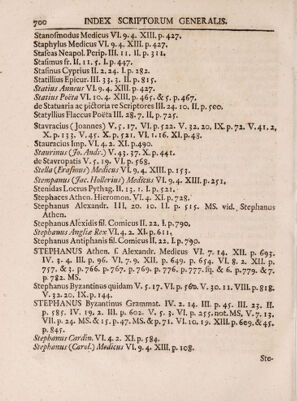 700 INDEX SCRIPTORUM GENERALIS.
Stanosmodus Medicus VI. 9. 4. XIII. p. 427.
Staphylus Medicus VI. 9. 4. XIII. p. 427.
Staseas Neapol. Perip. III. 11. II. p. 311.
Stasimus fr. II. 11. 5. I. p. 447.
Stasinus Cyprius II. 2. 24. I. p. 282.
Statillius Epicur. III. 33. 2. II. p. 815.
Statius Anneus VI. 9. 4. XIII. p. 427.
Statius Poëta VI. 10. 4. XIII. p. 465. & 5. p. 467.
de Statuaria ac pictoria re Scriptores III. 24. 10. II. p. 500.
Statyllius Flaccus Poëta III. 28. 7. II. p. 725.
Stavracius (Joannes) V. 5. 17. VI. p. 522. V. 32. 20. IX. p. 72. V. 41. 2,
X. p. 133. V. 45. X. p. 521. VI. 1. 16. XI. p. 43.
Stauracius Imp. VI. 4. 2. XI. p. 490.
Staurinus (Jo. Andr.) V. 43. 37. X. p. 441.
de Stavropatis V. 5. 19. VI. p. 568.
Stella (Erasmus) Medicus VI. 9. 4. XIII. p. 153.
Stempanus (Jac. Hollerius) Medicus VI. 9. 4. XIII. p. 251.
Stenidas Loctus Pythag. II. 13. 1. I. p. 521.
Stephaces Athen. Hieromon. VI. 4. XI. p. 728.
Stephanus Alexandr. III. 20. 10. II. p. 515. MS. vid. Stephanus
Athen.
Stephanus Alexidis fil. Comicus II. 22. I. p. 790.
Stephanus Angliæ Rex VI. 4. 2. XI. p. 611.
Stephanus Antiphanis fil. Comicus II. 22. I. p. 790.
STEPHANUS Athen. f. Alexandr. Medicus VI. 7. 14. XII. p. 693.
IV. 3. 4. III. p. 96. VI. 7. 9. XII. p. 649. p. 654. VI. 8. 2. XII. p.
757. & 3. p. 766. p. 767. p. 769. p. 776. p. 777. sq. & 6. p. 779. & 7.
p. 782. MS.
Stephanus Byzantinus quidam V. 5. 17. VI. p. 560. V. 30. 11. VIII. p. 818.
V. 32. 20. IX. p. 144.
STEPHANUS Byzantinus Grammat. IV. 2. 14. III. p. 45. III. 23. II.
p. 585. IV. 19. 2. III. p. 602. V. 5. 3. VI. p. 255. not. MS. V. 7. 13.
VII. p. 24. MS. & 15. p. 47. MS. & p. 71. VI. 10. 19. XIII. p. 609. & 45.
p. 845.
Stephanus Cardin. VI. 4. 2. XI. p. 584.
Stephanus (Carol.) Medicus VI. 9. 4. XIII. p. 108.
Ste-